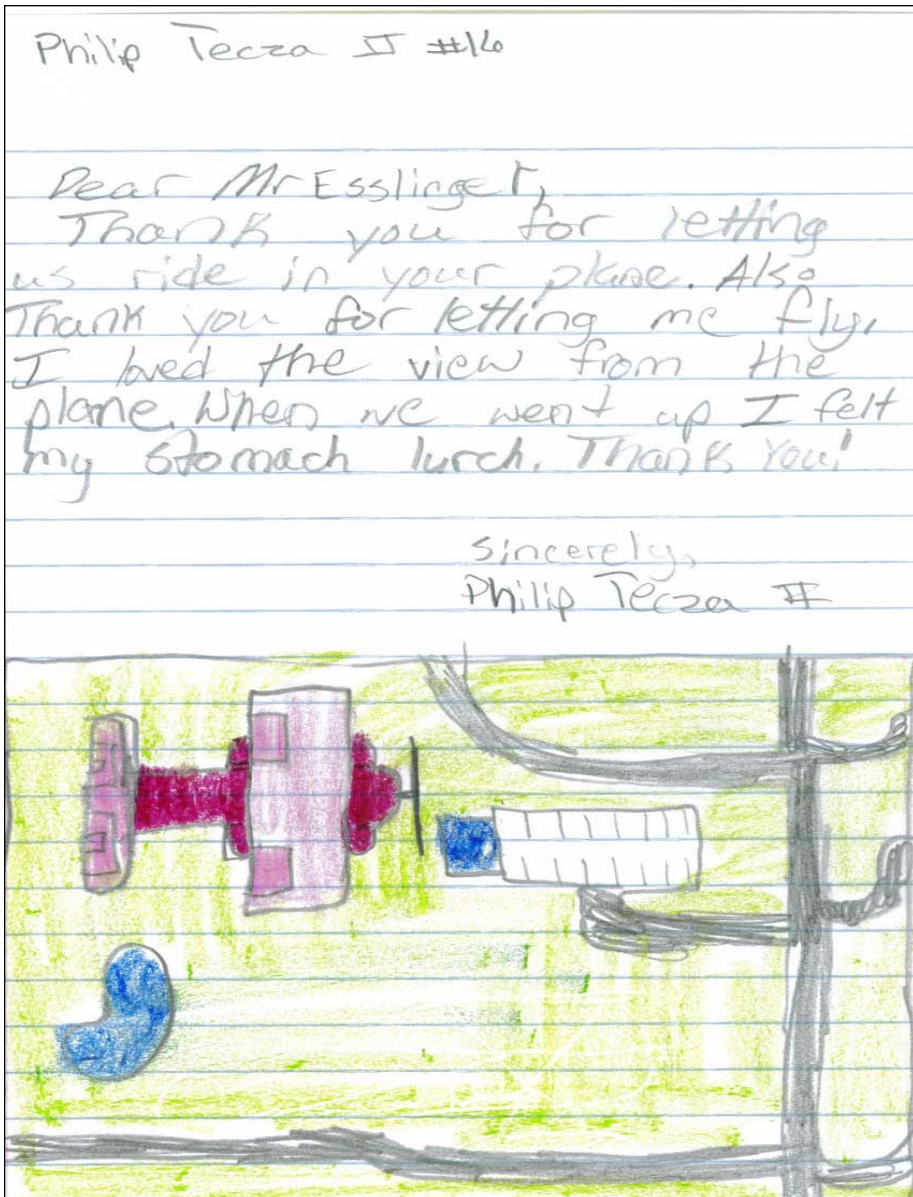 Philip Tecza II #16
Dear Mr Esslinger,
Thank you for letting
us ride in your plane. Also
Thank you for letting me fly.
I loved the view from the
plane. When we went up I felt
my stomach lurch. Thank You!
Sincerely,
Philip Tecza II